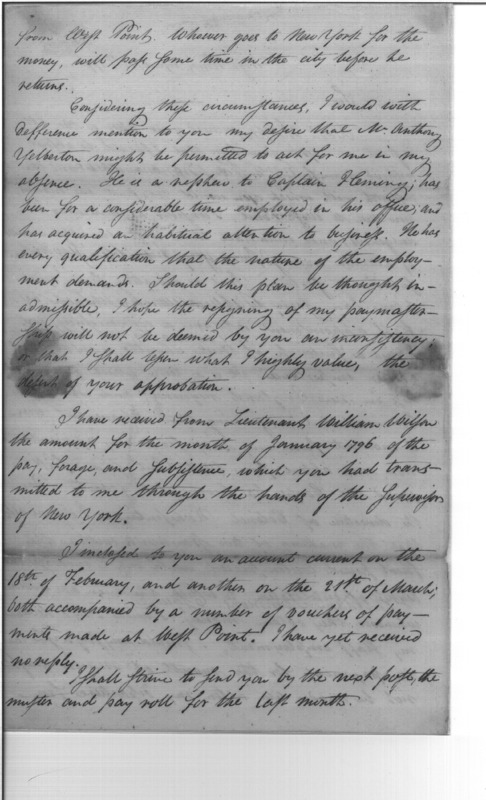 from West Point. Whoever goes to New York for the
money, will pass some time in the city before he
returns.
Considering these circumstances, I would with
defference mention to you my desire that Mr. Anthony
Yelverton might be permitted to act for me in my
absence. He is a nephew to Captain Fleming; has
been for a considerable time employed in his office, and
has acquired an habitual attention to business. He has
every qualification that the nature of the employ-
ment demands. Should this plan be thought in-
admissible, I hope the resigning of my paymaster-
ship will not be deemed by you an inconsistency;
or that I shall lessen what I highly value, the
of your approbation.
I have received from Lieutenant William Wilson
the amount for the month of January 1796 of the
pay, forage, and subsistence, which you had trans-
mitted to me through the hands of the Supervisor
of New York.
I inclosed to you an account current on the
18th of February, and another on the 21st of March,
both accompanied by a number of vouchers of pay-
ments made at West Point. I have yet received
no reply.
I shall strive to send you by the next post, the
muster and pay roll for the last month.